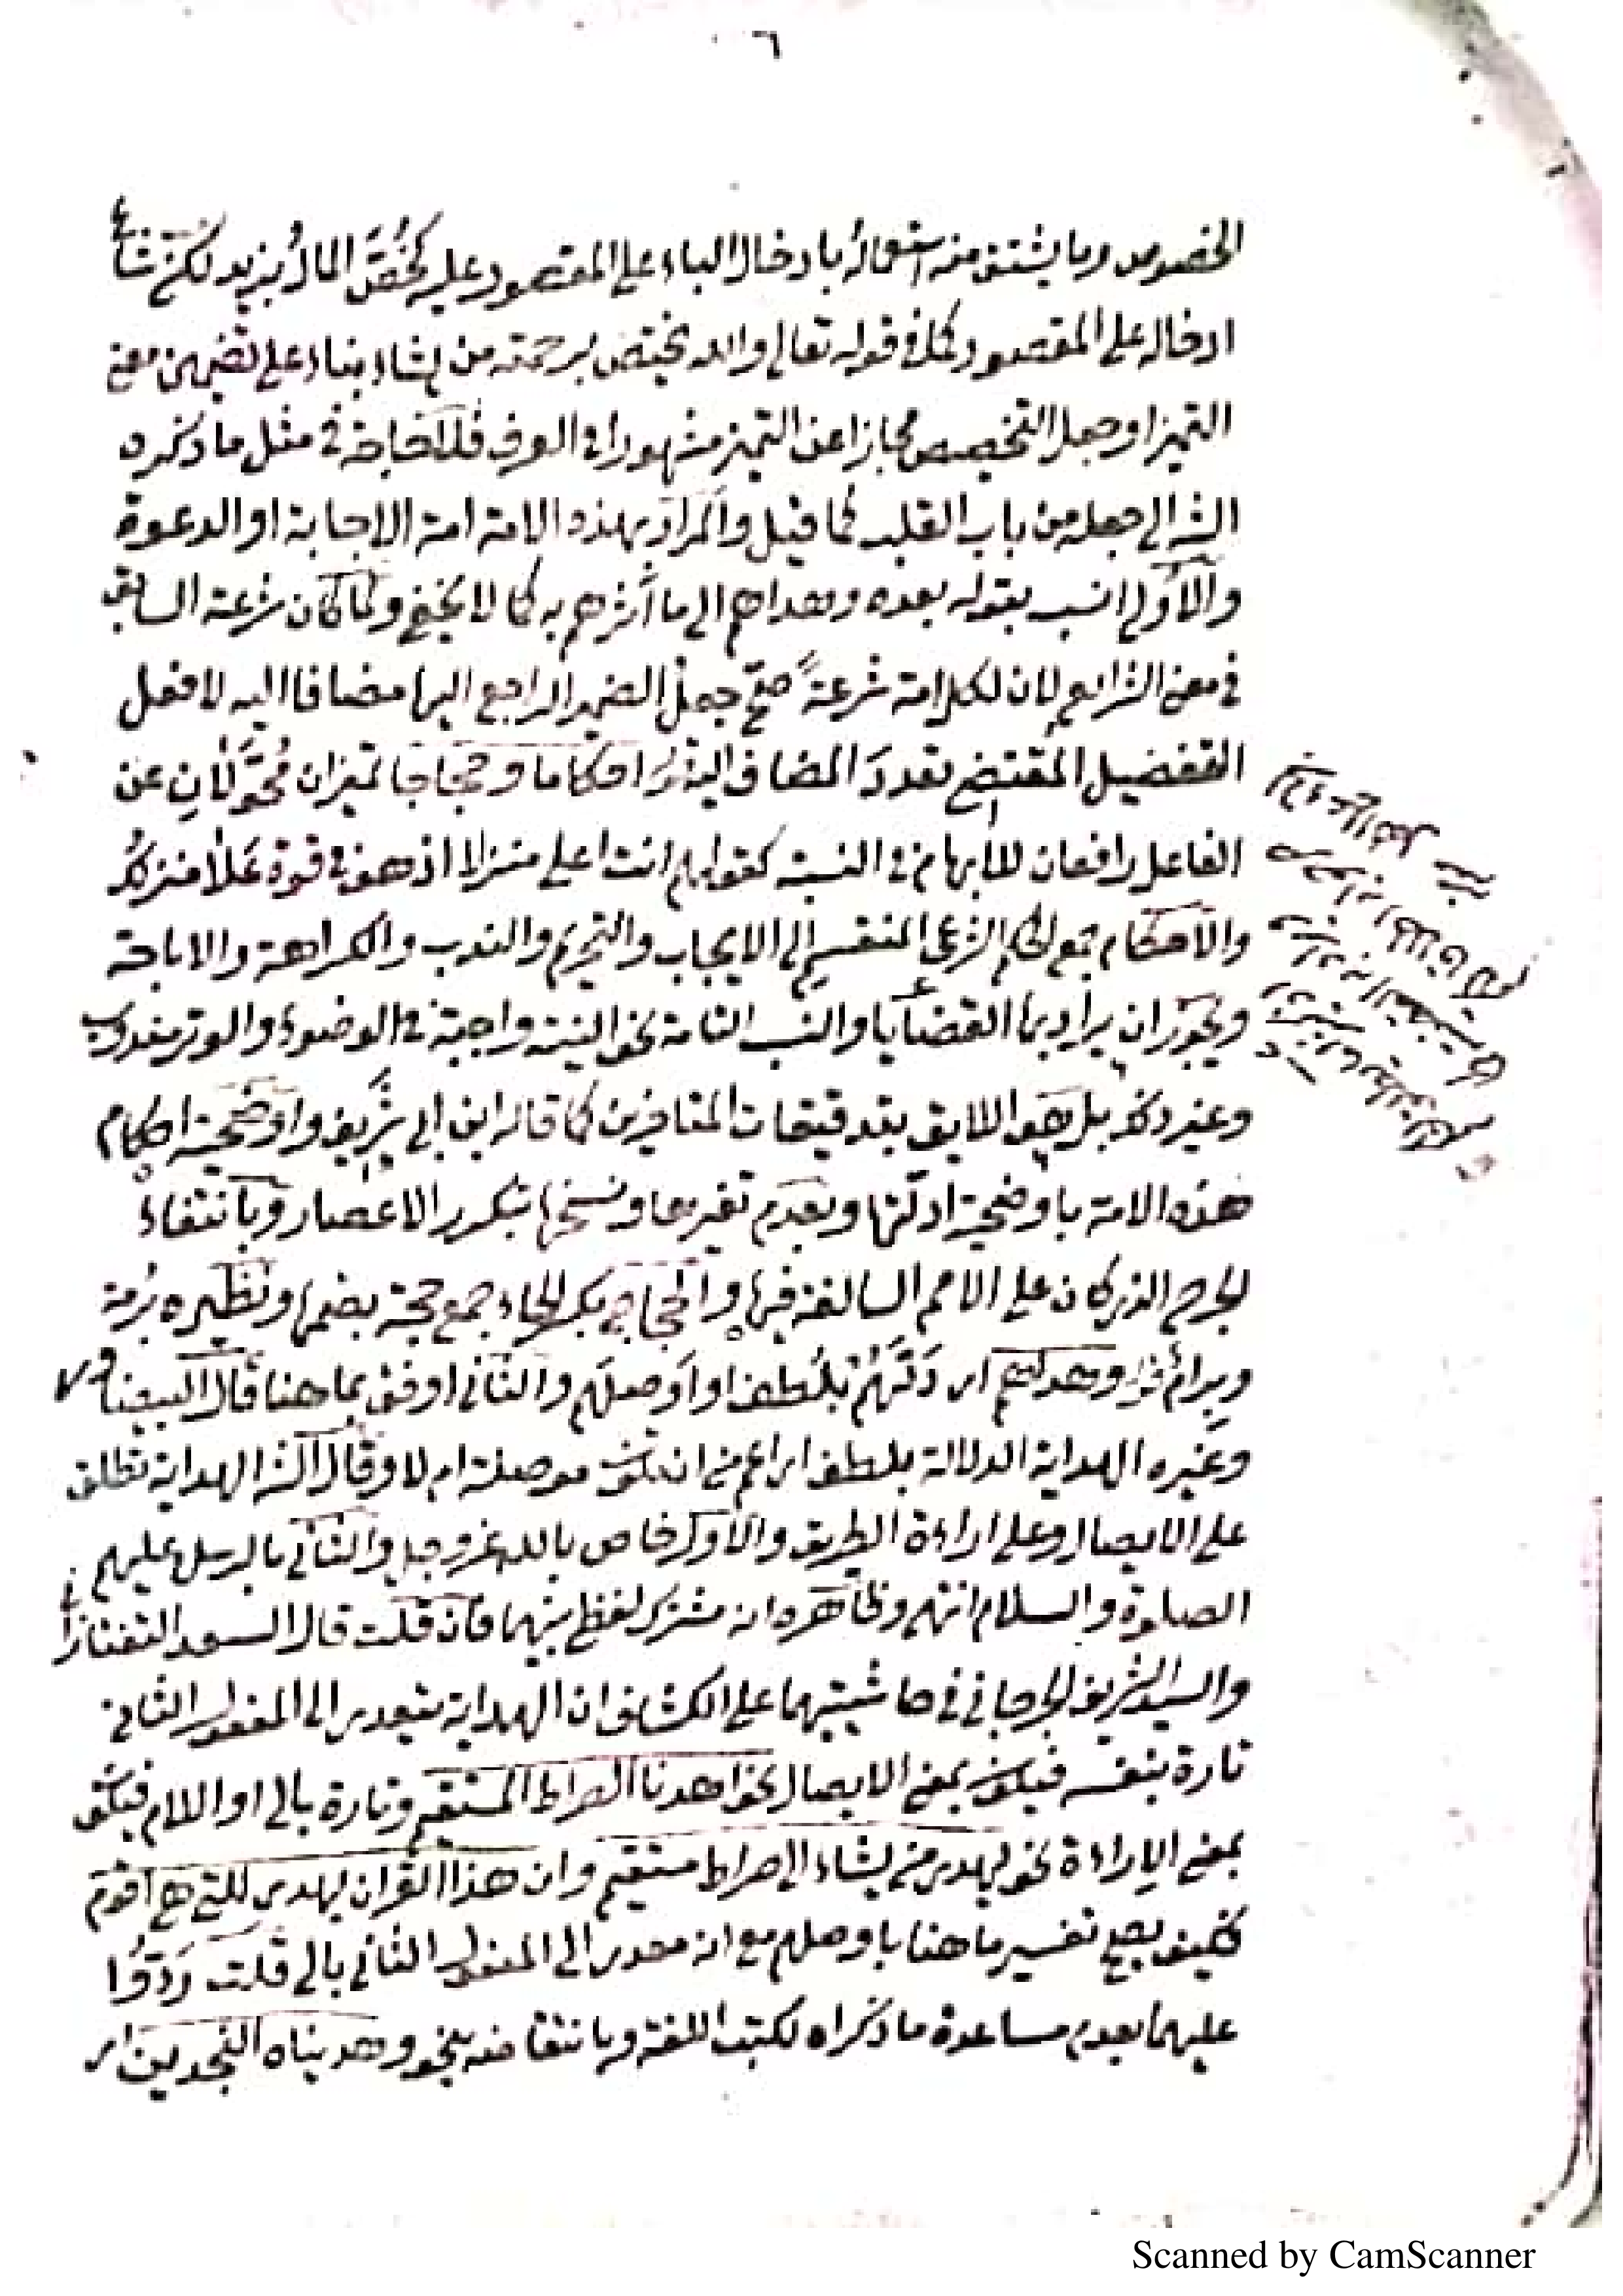 ٦
الخصوص وما يشتق منه استعماله بادخال الباء على المقصود عليه كخُصَّ المالُ بزيد لكن شاع
ادخاله على المقصود كما في قوله تعالى والله يختص برحمته من يشاء بناء على تضمين معنى
التميز او جعل التخصيص مجازا عن التميز مشهورا في العرف فلا حاجة في مثل ما ذكره
الش الى جعله من باب القلب كما قيل والمراد بهذه الامة امة الاجابة او الدعوة
والاولى انسب بقوله بعده وهداهم الى ما أثرهم به كما لا يخفى ولما كان شرعة السابق
في معنى الشرايع لان لكل امة شرعةً صح جعل الضمير الراجع اليها مضافا اليه لافعل
التفضيل المقتضي تعدد المضاف اليه قوله احكاما وحججا تميزان مُحَوَّلانِ عن
الفاعل رافعان للابهام في النسبة كقولهم انت اعلى منزلا اذ هو في قوة عَلا منزلك
والاحكام جمع الحكم الشرعي المنقسم الى الايجاب والتحريم والندب والكراهة والاباحة
ويجوز ان يراد بها القضايا والنسب التامة نحو النية واجبة في الوضوء والوتر مندوب
وغير ذلك بل هو اللايق بتدقيقات المتاخرين كما قاله ابن ابي شريف واوضحية احكام
هذه الامة باوضحية ادلتها وبعدم تغيرها ونسخها بتكرر الاعصار وبانتفاء
الحرج الذي كان على الامم السالفة فيها والحجاج بكسر الحاء جمع حجة بضمها ونظيره برمة
وبرام قوله وهداهم اي دَلَّهُمْ بلُطف او اَوصلهم والثاني اوفق بما هنا قال البيضاوي
وغيره الهداية الدلالة بلطف اي اعم من ان تكون موصلة ام لا وقال الش الهداية تطلق
على الايصال وعلى اراءة الطريق والاول خاص بالله عز وجل والثاني بالرسل عليهم
الصلوة والسلام انتهى وظاهره انه مشترك لفظي بينهما فان قلت قال السعد التفتازاني
والسيد الشريف الجرجاني في حاشيتيهما على الكشاف ان الهداية تتعدى الى المفعول الثاني
تارة بنفسه فيكون بمعنى الايصال نحو اهدنا الصراط المستقيم وتارة بالى او اللام فيكون
بمعنى الاراءة نحو يهدي من يشاء الى صراط مستقيم وان هذا القران يهدي للتي هي اقوم
فكيف يصح تفسير ما هنا باوصلهم مع انه معدى الى المفعول الثاني بالى قلت رَدَّوُا
عليهما بعدم مساعدة ما ذكراه لكتب اللغة وبانتقاضه بنحو وهديناه النجدين اي
Scanned by CamScanner